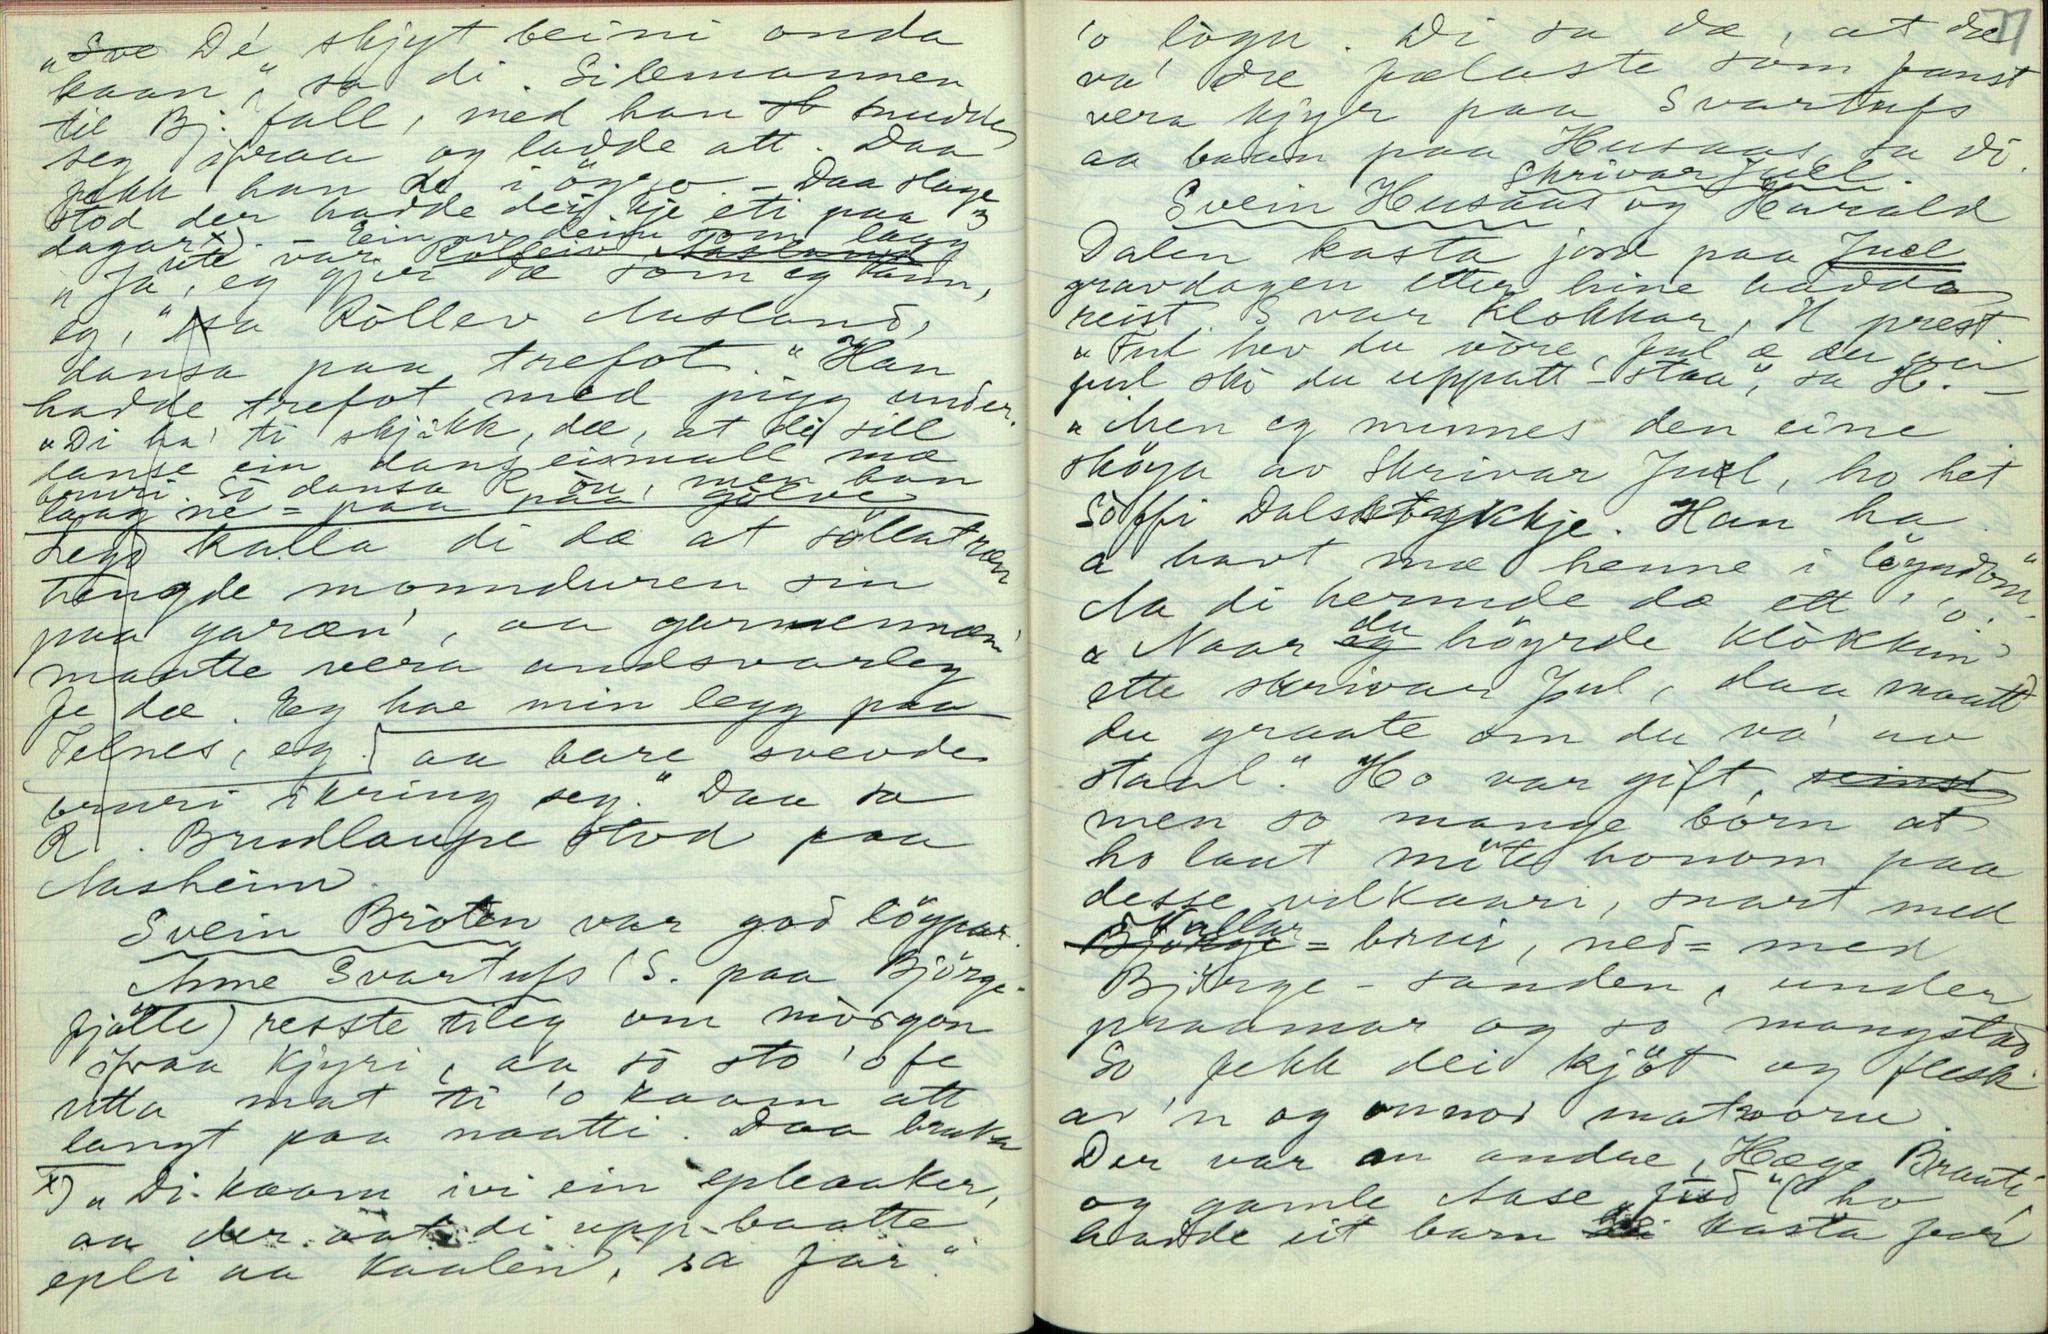 "Soe De' skjyt beini onda
kaan," sa di Silemannen
til Bj. fall, med han sb snudde
seg ifraa og ladde att. Daa
fekk han de i ögso. – Daa slage
stod der hadde dei kje eti paa 3
dagar x). – Ein av deim som laag
ute var Rolleiv Aasland
"Ja, eg gjer dæ som eg kann,
eg," sa Röllev Aasland,
dansa paa trefot." Han
hadde trefot med pigg under.
"Di ha' ti skjikk, dæ, at di sill
danse ein dans eismall mæ
bruri. So dansa R òu, men han
laag ne = paa paa gölve
Legd kalla di dæ at söllatræn
hengde monnduren sin
paa garæn', aa garmennæn'
maatte vera andsvarleg
fe dæ. Eg hae min legg paa
Felnes, eg aa bare svevde
bruri ikring seg." Daa sa
R. Brudlaupe stod paa
Aasheim.
Svein Bröten var god løgpar.
Anne Svartufs (S. paa Björge-
fjölle) resste tileg om mòrgon
ifraa kjyri, aa so sto 'o fe
utta mat ti 'o kaam att
langt paa naatti. Daa braka
x) "Di kaam ivi ein epleaaker,
aa der aat di upp baatte
epli aa kaalen, sa far."
'o lògn. Di sa dæ, at dæ 77
va' dæ fælaste som fanst
vera kjyr paa Svartufs
aa baan paa Husaas, sa di.
Skrivar Juel.
Svein Husaas og Harald
Dalen kasta jord paa Juel
gravdagen etter hine hadde
reist. S var klokkar, H prest.
"Ful hev du vöre, ful æ du
ful ska du uppatt-staa", sa H. –
"Men eg minnes den eine
sköya av skrivar Juel, ho het
Söffi Dalstykkje. Han ha
a havt mæ henne i löyndom"
Aa di hermde dæ ett 'o.
"Naar eg du höyrde klòkkun
ette skrivar Jul, daa maatt
du graate om du va' av
staal." Ho var gift, seinst
men so mange börn at
ho laut möte honom paa
desse vilkaari, snart med
Björge Skullar = brui, ned = med
Björge-sanden, under
praamar og so mangstad
So fekk dei kjöt og flesk
av 'n og onnor matvoru.
Der var en andre, Hæge Braati
og gamle Aase "Jud" (ho
hadde eit barn dei kasta for